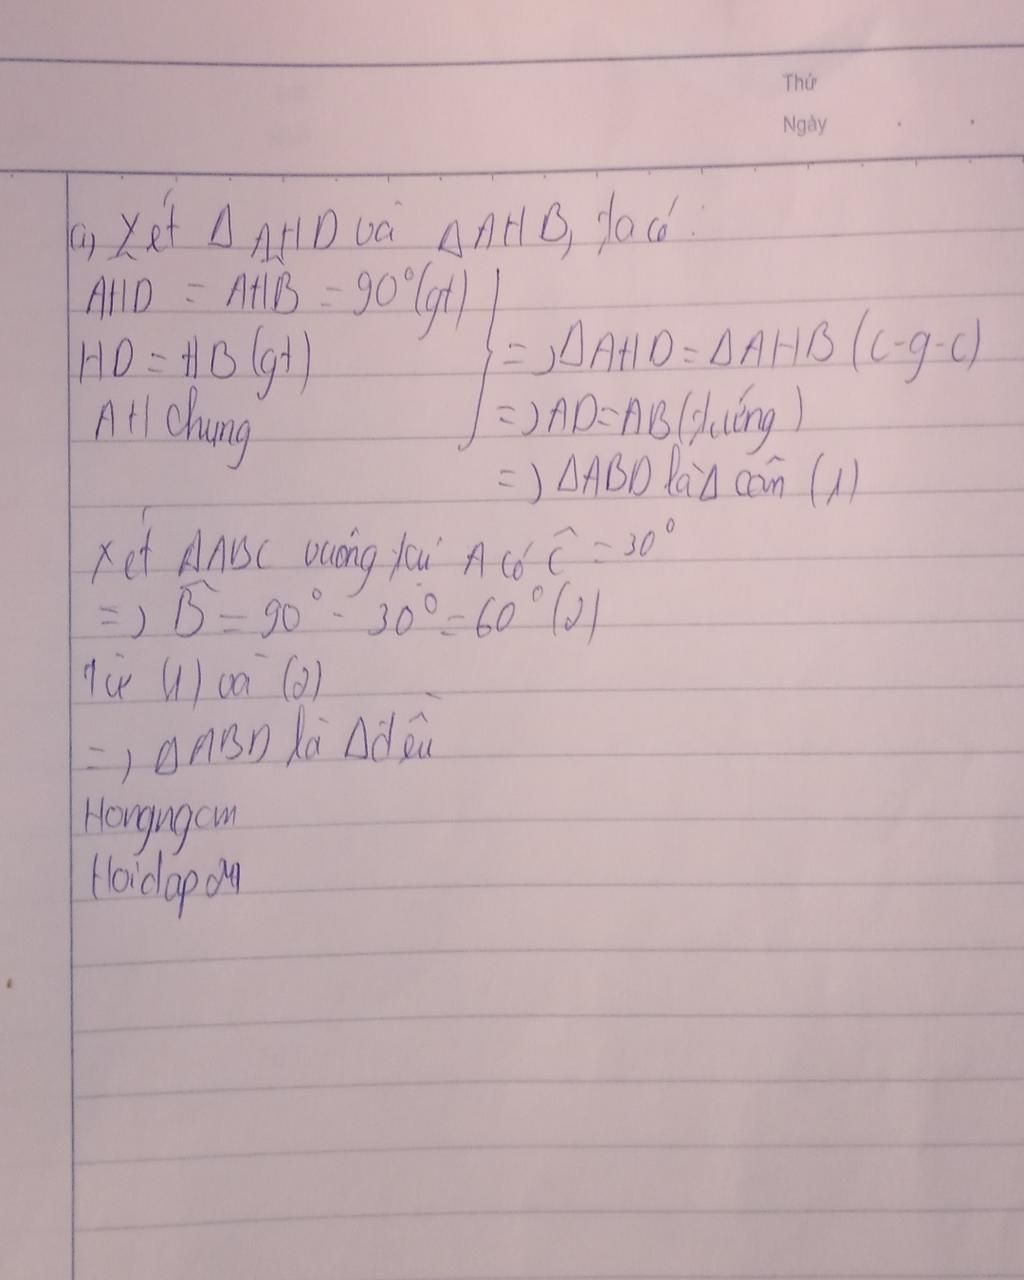 Thứ
Ngày
a, Xét Δ AHD và ΔAHB, ta có:
AHD = AHB = 90°(gt)
HD = HB (gt)
AH chung
=> ΔAHD = ΔAHB (c-g-c)
=> AD = AB (tứng)
=> ΔABD là Δ cân (1)
Xét ΔABC vuông tại A có Ĉ = 30°
=> B̂ = 90° - 30° = 60° (2)
Từ (1) và (2)
=> ΔABD là Δ đều
Hongngcm
Hoidap24